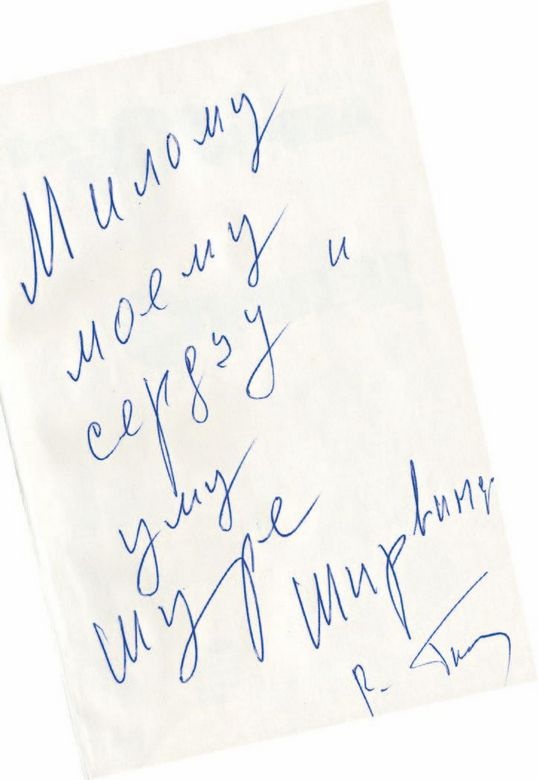 Милому
моему
сердцу и
уму
Шуре
Ширвинд